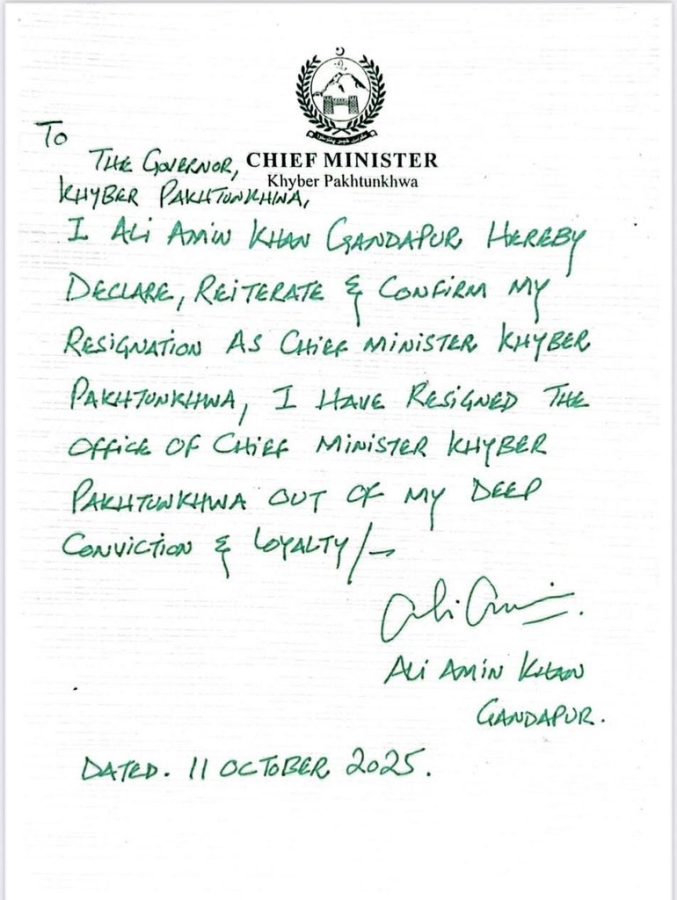 To
THE GOVERNOR,
CHIEF MINISTER
Khyber Pakhtunkhwa
KHYBER PAKHTUNKHWA,
I ALI AMIN KHAN GANDAPUR HEREBY
DECLARE, REITERATE & CONFIRM MY
RESIGNATION AS CHIEF MINISTER KHYBER
PAKHTUNKHWA, I HAVE RESIGNED THE
OFFICE OF CHIEF MINISTER KHYBER
PAKHTUNKHWA OUT OF MY DEEP
CONVICTION & LOYALTY/-
Ali Amin.
ALI AMIN KHAN
GANDAPUR.
DATED. 11 OCTOBER 2025.